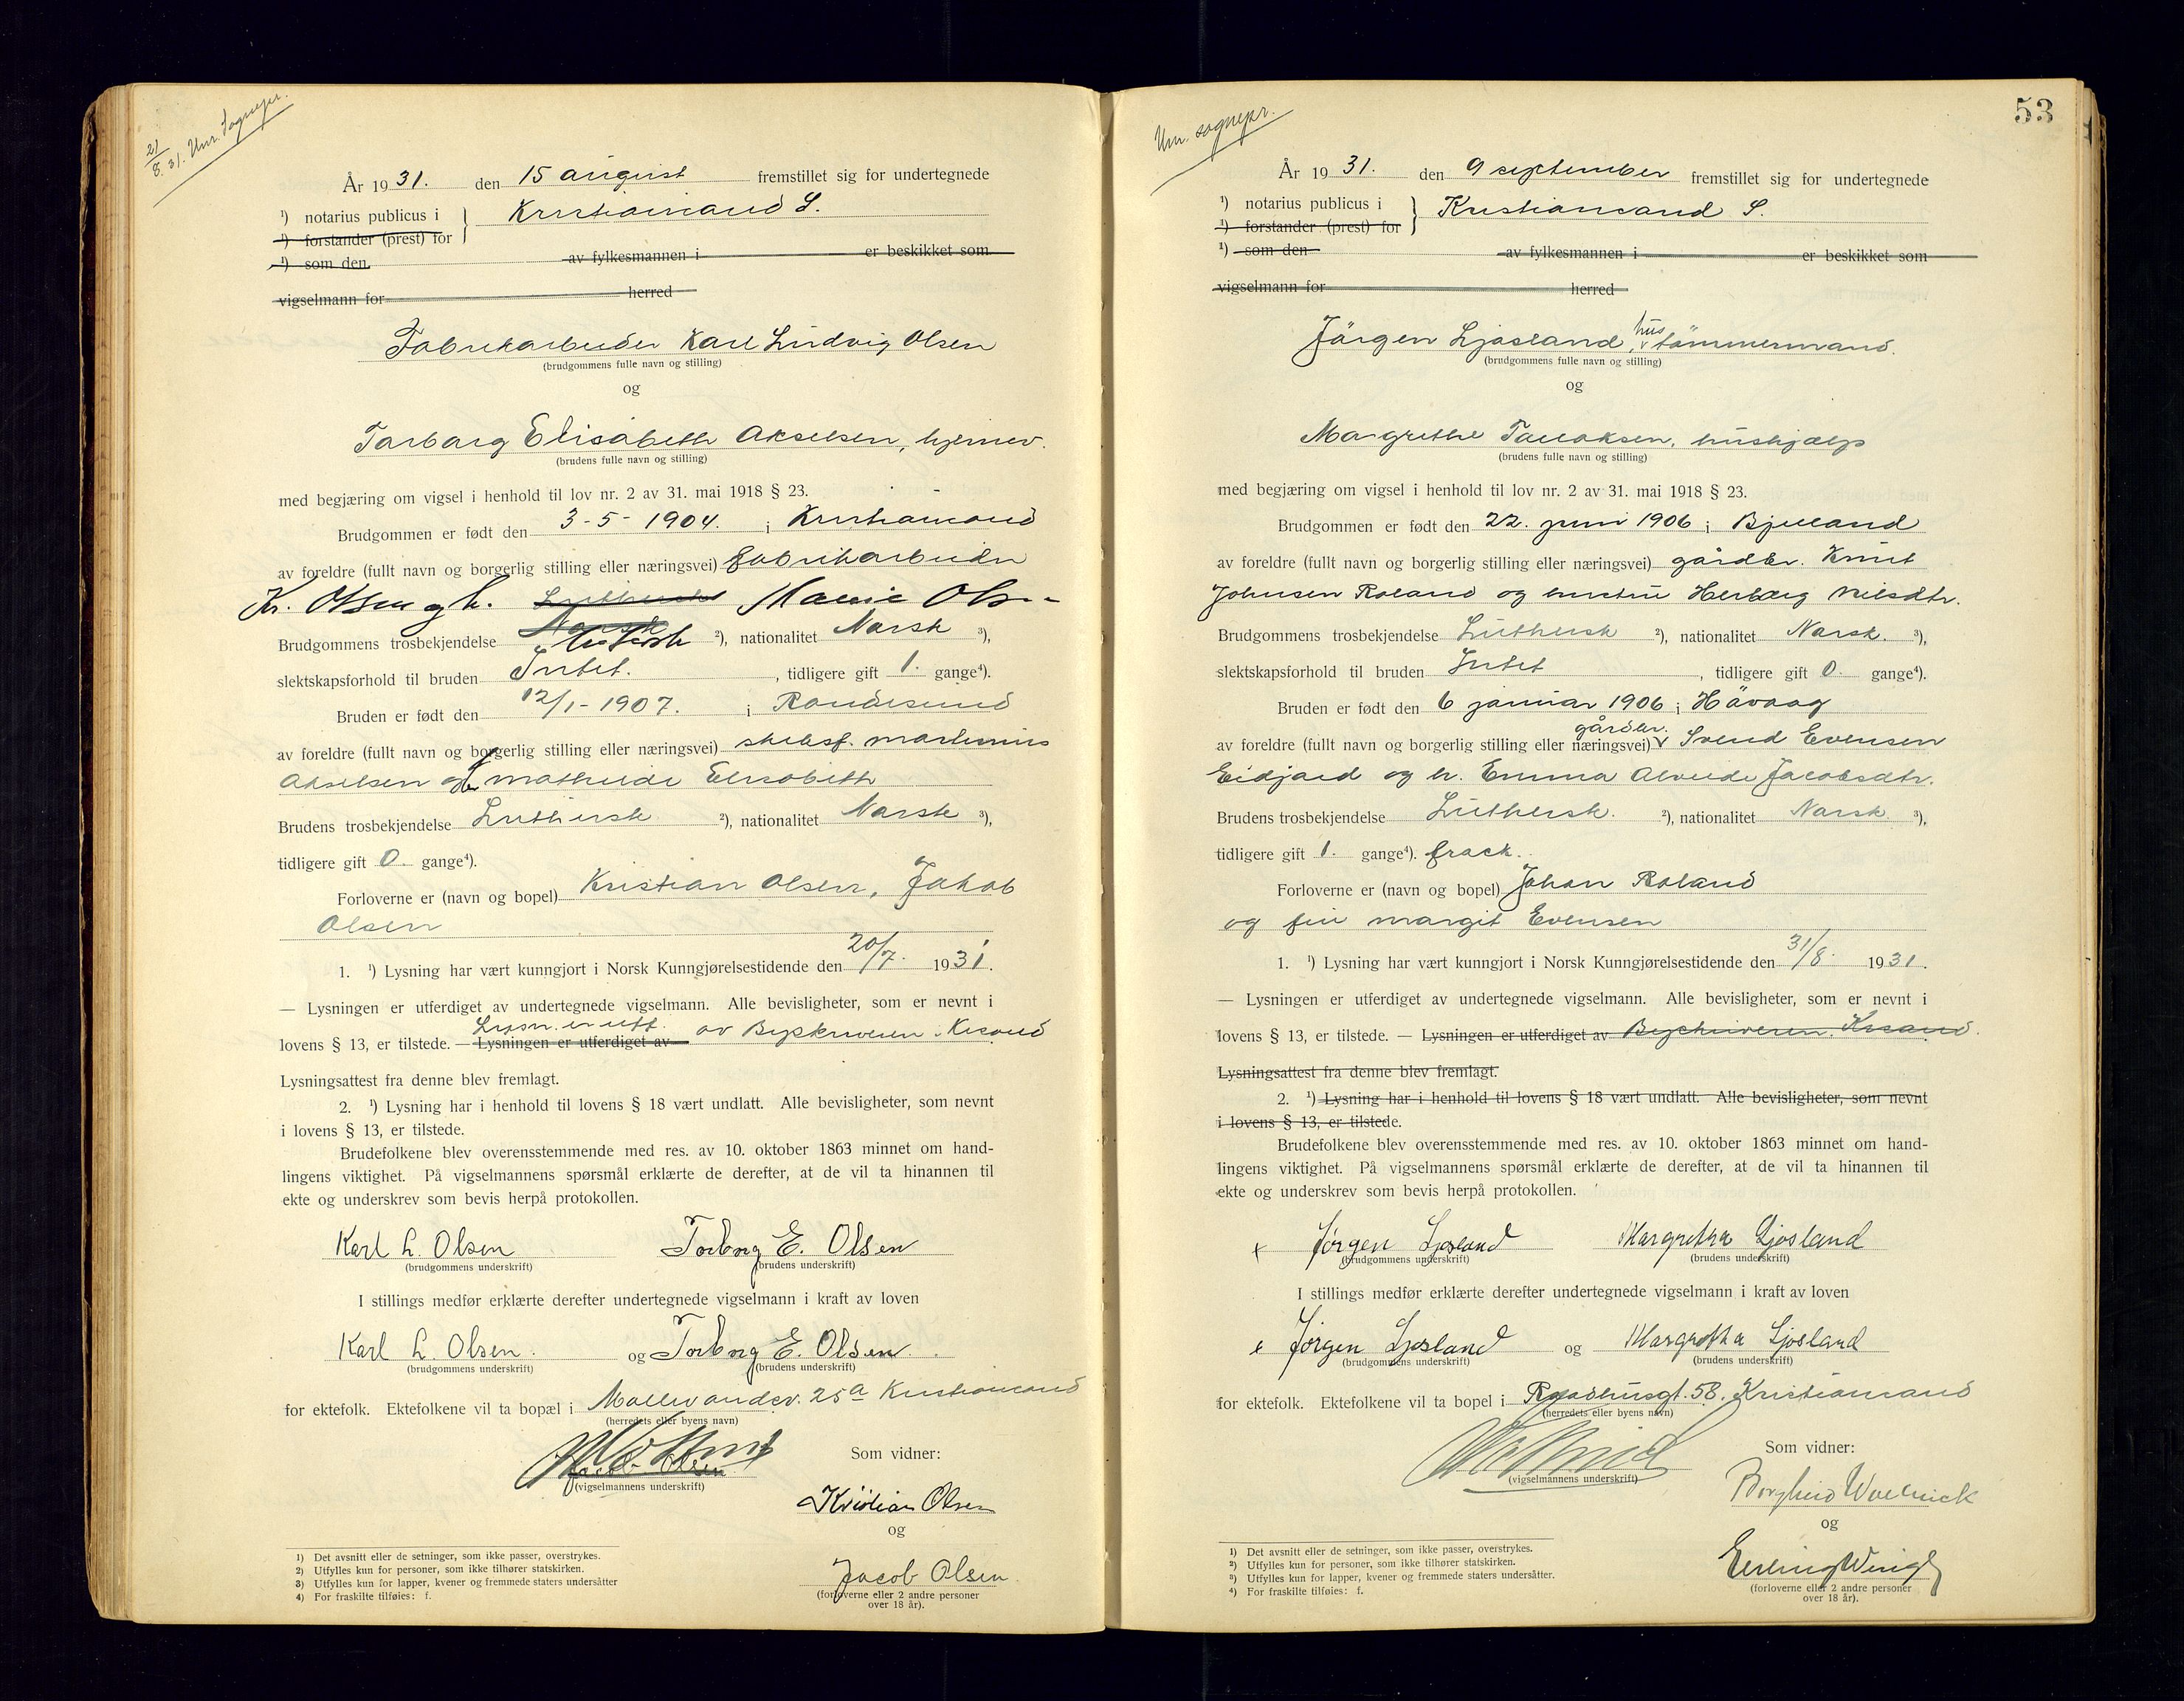 21/8. 31. Unr. Sognepr.
År 1931. den 15 august fremstillet sig for undertegnede
¹) notarius publicus i } Kristiansand S.
¹) forstander (prest) for
¹) som den av fylkesmannen i er beskikket som
vigselmann for herred
Fabrikarbeider Karl Ludvig Olsen
(brudgommens fulle navn og stilling)
og
Torborg Elisabeth Akselsen, hjemmev.
(brudens fulle navn og stilling)
med begjæring om vigsel i henhold til lov nr. 2 av 31. mai 1918 § 23.
Brudgommen er født den 3-5-1904. i Kristiansand
av foreldre (fullt navn og borgerlig stilling eller næringsvei) fabrikarbeider
Kr. Olsen og h. Marie Olsen
Brudgommens trosbekjendelse Luthersk ²), nationalitet Norsk ³),
slektskapsforhold til bruden Intet. , tidligere gift 1. gange⁴).
Bruden er født den 12/1-1907. i Randesund
av foreldre (fullt navn og borgerlig stilling eller næringsvei) skibsf. Martinius
Akselsen og h. Mathilde Elisabeth
Brudens trosbekjendelse Luthersk ²), nationalitet Norsk ³),
tidligere gift 0. gange⁴).
Forloverne er (navn og bopel) Kristian Olsen, Jakob
Olsen
1. ¹) Lysning har vært kunngjort i Norsk Kunngjørelsestidende den 20/7. 1931.
— Lysningen er utferdiget av undertegnede vigselmann. Alle bevisligheter, som er nevnt i
Lysn. er utf.
lovens § 13, er tilstede. — Lysningen er utferdiget av av Byskriveren i Krsand
Lysningsattest fra denne blev fremlagt.
2. ¹) Lysning har i henhold til lovens § 18 vært undlatt. Alle bevisligheter, som nevnt
i lovens § 13, er tilstede.
Brudefolkene blev overensstemmende med res. av 10. oktober 1863 minnet om hand-
lingens viktighet. På vigselmannens spørsmål erklærte de derefter, at de vil ta hinannen til
ekte og underskrev som bevis herpå protokollen.
Karl L. Olsen Torborg E. Olsen
(brudgommens underskrift) (brudens underskrift)
I stillings medfør erklærte derefter undertegnede vigselmann i kraft av loven
Karl L. Olsen. og Torborg E. Olsen.
(brudgommens underskrift) (brudens underskrift)
for ektefolk. Ektefolkene vil ta bopæl i Møllevandsv. 25a Kristiansand
(herredets eller byens navn)
Jacob Olsen
(vigselmannens underskrift)
Som vidner:
Kristian Olsen
og
Jacob Olsen
(forloverne eller 2 andre personer
over 18 år).
1) Det avsnitt eller de setninger, som ikke passer, overstrykes.
2) Utfylles kun for personer, som ikke tilhører statskirken.
3) Utfylles kun for lapper, kvener og fremmede staters undersåtter
4) For fraskilte tilføies: f.
53
Unr. sognepr.
År 1931. den 9 september fremstillet sig for undertegnede
¹) notarius publicus i } Kristiansand S.
¹) forstander (prest) for
¹) som den av fylkesmannen i er beskikket som
vigselmann for herred
Jörgen Ljosland, hustömmermand.
(brudgommens fulle navn og stilling)
og
Margrethe, hushjælp
(brudens fulle navn og stilling)
med begjæring om vigsel i henhold til lov nr. 2 av 31. mai 1918 § 23.
Brudgommen er født den 22. juni 1906 i Bjelland
av foreldre (fullt navn og borgerlig stilling eller næringsvei) gårdbr. Knut
Johnsen Roland og hustru Herborg Nilsdtr.
Brudgommens trosbekjendelse Luthersk ²), nationalitet Norsk. ³),
slektskapsforhold til bruden Intet , tidligere gift 0. gange⁴).
Bruden er født den 6 januar 1906 i Hövaag
gårdbr.
av foreldre (fullt navn og borgerlig stilling eller næringsvei) Svend Evensen
Eidjord og h. Emma Alvilde Jacobsdtr.
Brudens trosbekjendelse Luthersk. ²), nationalitet Norsk. ³),
tidligere gift 1. gange⁴). frask.
Forloverne er (navn og bopel) Johan Roland
og fru Margit Evensen
1. ¹) Lysning har vært kunngjort i Norsk Kunngjørelsestidende den 31/8. 1931.
— Lysningen er utferdiget av undertegnede vigselmann. Alle bevisligheter, som er nevnt i
lovens § 13, er tilstede. — Lysningen er utferdiget av Byskriveren, Krsand.
Lysningsattest fra denne blev fremlagt.
2. ¹) Lysning har i henhold til lovens § 18 vært undlatt. Alle bevisligheter, som nevnt
i lovens § 13, er tilstede.
Brudefolkene blev overensstemmende med res. av 10. oktober 1863 minnet om hand-
lingens viktighet. På vigselmannens spørsmål erklærte de derefter, at de vil ta hinannen til
ekte og underskrev som bevis herpå protokollen.
x Jørgen Ljosland Margretha Ljosland
(brudgommens underskrift) (brudens underskrift)
I stillings medfør erklærte derefter undertegnede vigselmann i kraft av loven
x Jørgen Ljosland og Margretha Ljosland
(brudgommens underskrift) (brudens underskrift)
for ektefolk. Ektefolkene vil ta bopel i Raadhusgt. 58. Kristiansand
(herredets eller byens navn)
(vigselmannens underskrift)
Som vidner:
Borghild
og
Erling
(forloverne eller 2 andre personer
over 18 år).
1) Det avsnitt eller de setninger, som ikke passer, overstrykes.
2) Utfylles kun for personer, som ikke tilhører statskirken.
3) Utfylles kun for lapper, kvener og fremmede staters undersåtter.
4) For fraskilte tilføies: f.